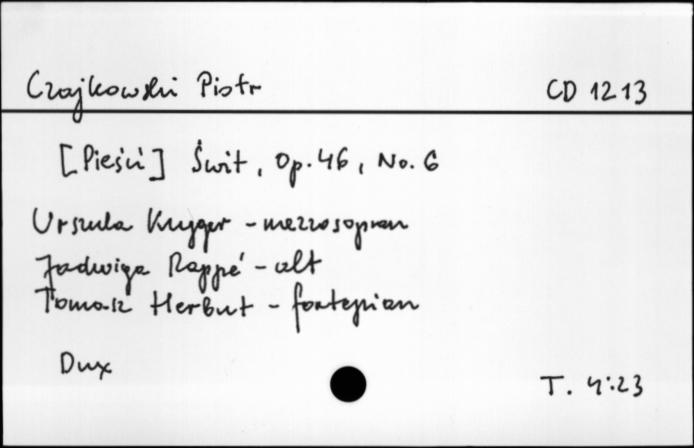 Czajkowski Piotr CD 1213
[Pieśni] Świt, Op. 46, No. 6
Urszula Kryger - mezzosopran
Jadwiga Rappé - alt
Tomasz Herbut - fortepian
Dux T. 4:23